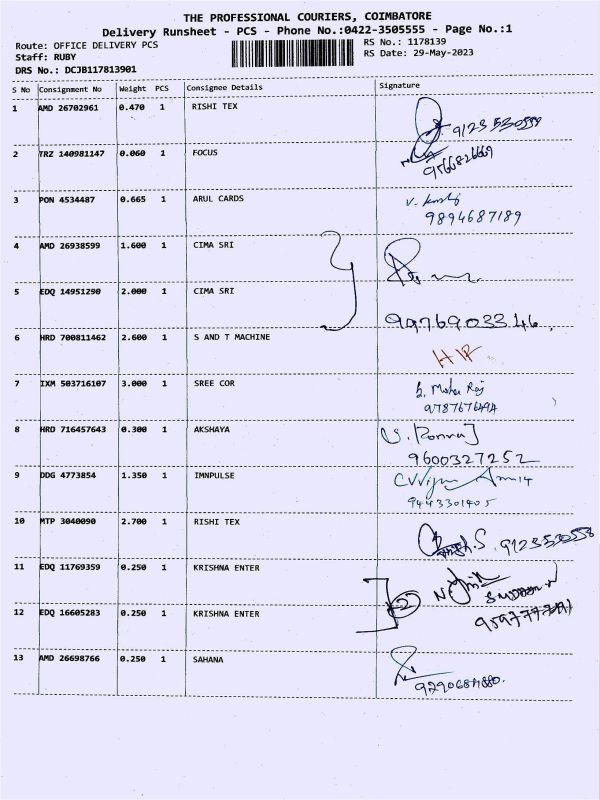 THE PROFESSIONAL COURIERS, COIMBATORE
Delivery Runsheet - PCS - Phone No.:0422-3505555 - Page No.:1
Route: OFFICE DELIVERY PCS RS No.: 1178139
Staff: RUBY RS Date: 29-May-2023
DRS No.: DCJB117813901
S No Consignment No Weight PCS Consignee Details Signature
1 AMD 26702961 0.470 1 RISHI TEX
2 TRZ 140981147 0.060 1 FOCUS
3 PON 4534487 0.665 1 ARUL CARDS
9894687189
4 AMD 26938599 1.600 1 CIMA SRI
5 EDQ 14951290 2.000 1 CIMA SRI
9976903346
6 HRD 700811462 2.600 1 S AND T MACHINE
7 IXM 503716107 3.000 1 SREE COR
8 HRD 716457643 0.300 1 AKSHAYA
9600327252
9 DDG 4773854 1.350 1 IMNPULSE
9443301405
10 MTP 3040090 2.700 1 RISHI TEX
11 EDQ 11769359 0.250 1 KRISHNA ENTER
12 EDQ 16605283 0.250 1 KRISHNA ENTER
13 AMD 26698766 0.250 1 SAHANA